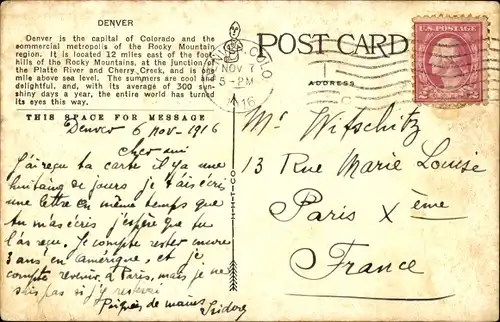 DENVER
Denver is the capital of Colorado and the
commercial metropolis of the Rocky Mountain
region. It is located 12 miles east of the foot-
hills of the Rocky Mountains, at the junction of
the Platte River and Cherry Creek, and is one
mile above sea level. The summers are cool and
delightful, and, with its average of 300 sun-
shiny days a year, the entire world has turned
its eyes this way.
THIS SPACE FOR MESSAGE
Denver 6 nov - 1916
cher ami
J'ai reçu ta carte il y a une
huitaine de jours je t'ais écris
une lettre en même temps que
tu m'as écris j'espère que tu
l'as reçue. Je compte rester encore
3 ans en amérique, et je
compte revenir à Paris, mais je ne
sais pas si j'y resterai
Poignées de mains
Isidore
POST CARD
ADDRESS
COLO
NOV 7
5-PM
1916
U.S. POSTAGE
C.T.
Mr Witschitz
13 Rue Marie Louise
Paris Xème
France